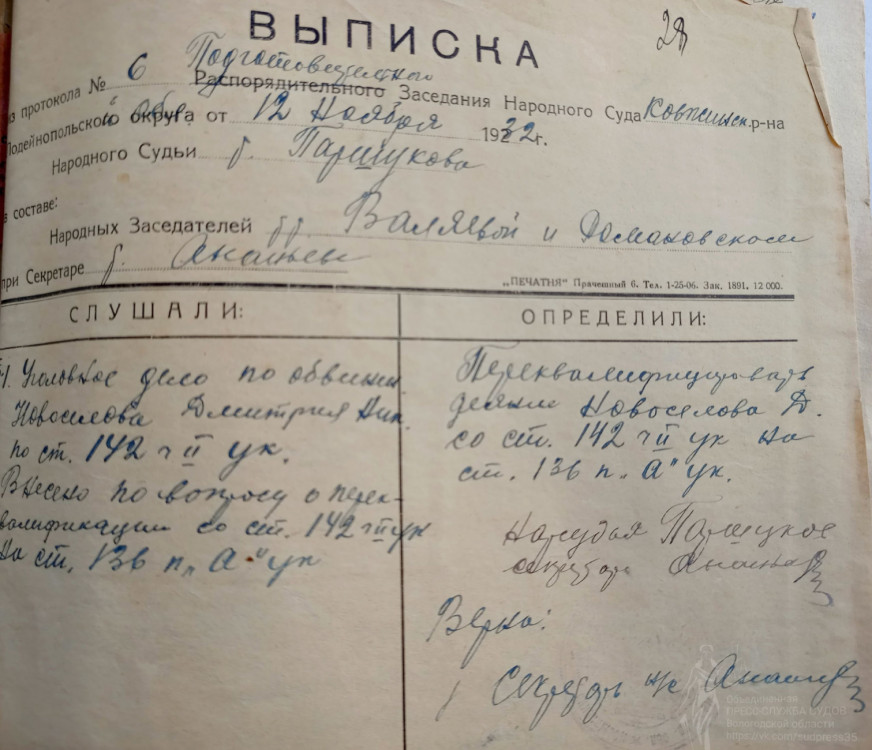 28
ВЫПИСКА
из протокола № 6 Подготовительного Распорядительного Заседания Народного Суда Ковжинск. р-на
Лодейнопольского округа от 12 Ноября 1932 г.
Народного Судьи г. Паршукова
в составе:
Народных Заседателей гр. Валяевой и Домановском
при Секретаре г. Ананьев
„ПЕЧАТНЯ" Прачешный 6. Тел. 1-25-06. Зак. 1891. 12 000.
СЛУШАЛИ:
1. Уголовное дело по обвинен.
Новоселова Дмитрия Ник.
по ст. 142 ч II ук.
Внесено по вопросу о перек-
валификации со ст. 142 ч II ук
на ст. 136 п. „А" ук
ОПРЕДЕЛИЛИ:
Переквалифицировать
деяния Новоселова Д.
со ст. 142 ч II ук на
ст. 136 п. „А" ук.
Нарсудья Паршуков
секретарь Ананьев
Верно:
Секретарь н/с Ананьев
Объединённая
ПРЕСС-СЛУЖБА СУДОВ
Вологодской области